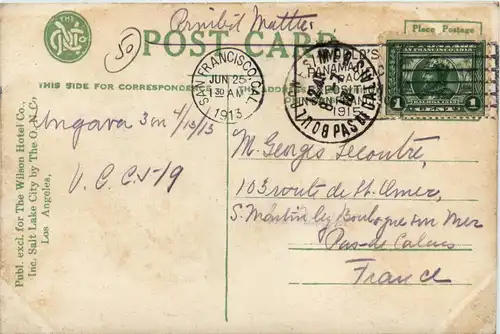 Printed Matter
THE
ONC
50
POST CARD
Place Postage
THIS SIDE FOR CORRESPONDENCE
Publ. excl. for The Wilson Hotel Co.,
Inc. Salt Lake City by The O. N. C.
Los Angeles,
SAN FRANCISCO, CAL.
JUN 25
1 30 AM
1913
WORLD'S
PANAMA PACIFIC
EXPOSITION
IN SAN FRANCISCO
1915
PAS DE
1
1
Ungava 3m 4/13/13
V. C. C. 1-19
M. Georges Lecontre,
103 route de St. Omer,
S. Martin les Boulogne sur Mer
Pas-de-Calais
France